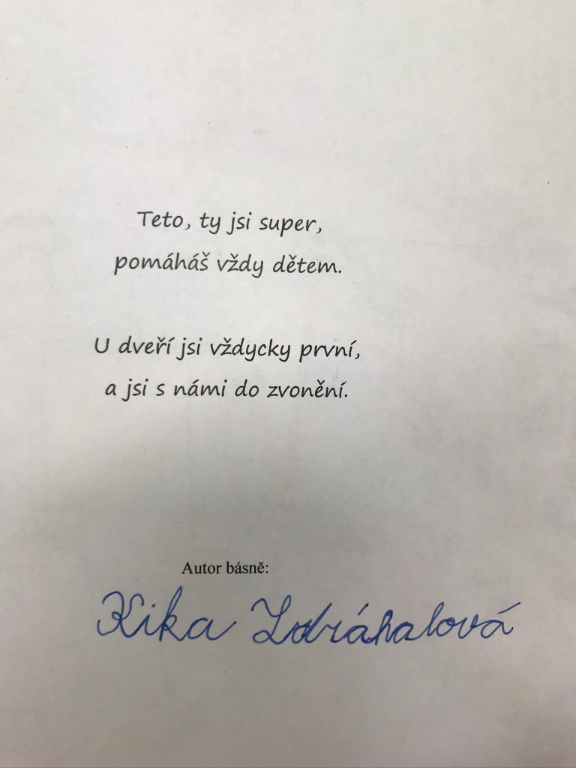 Teto, ty jsi super,
pomáháš vždy dětem.
U dveří jsi vždycky první,
a jsi s námi do zvonění.
Autor básně:
Kika Zdráhalová